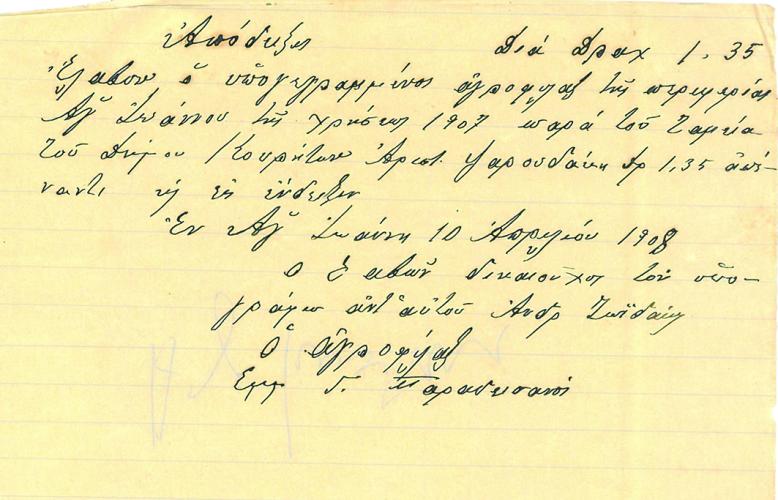 Ἀπόδειξις Διά Δραχ 1.35
Ἔλαβον ὁ ὑπογεγραμμένος ἀγροφύλαξ τῆς περιφερείας
Ἁγ Ἰωάννου τῆς χρήσεως 1907 παρά τοῦ ταμεία
τοῦ Δήμου Κουρήτων Ἀριστ. Φαρουδάκη δρ 1.35 ἀπέ-
ναντι
Ἐν Ἁγ Ἰωάννη 10 Ἀπριλίου 1908
Ο λαβων δικαιούχος τον υπο-
γράφω ἀντ' αὐτοῦ Ἀνδρ Ζωϊδάκη
Ὁ ἀγροφύλαξ
Εμμ Γ. Παραδεισανός